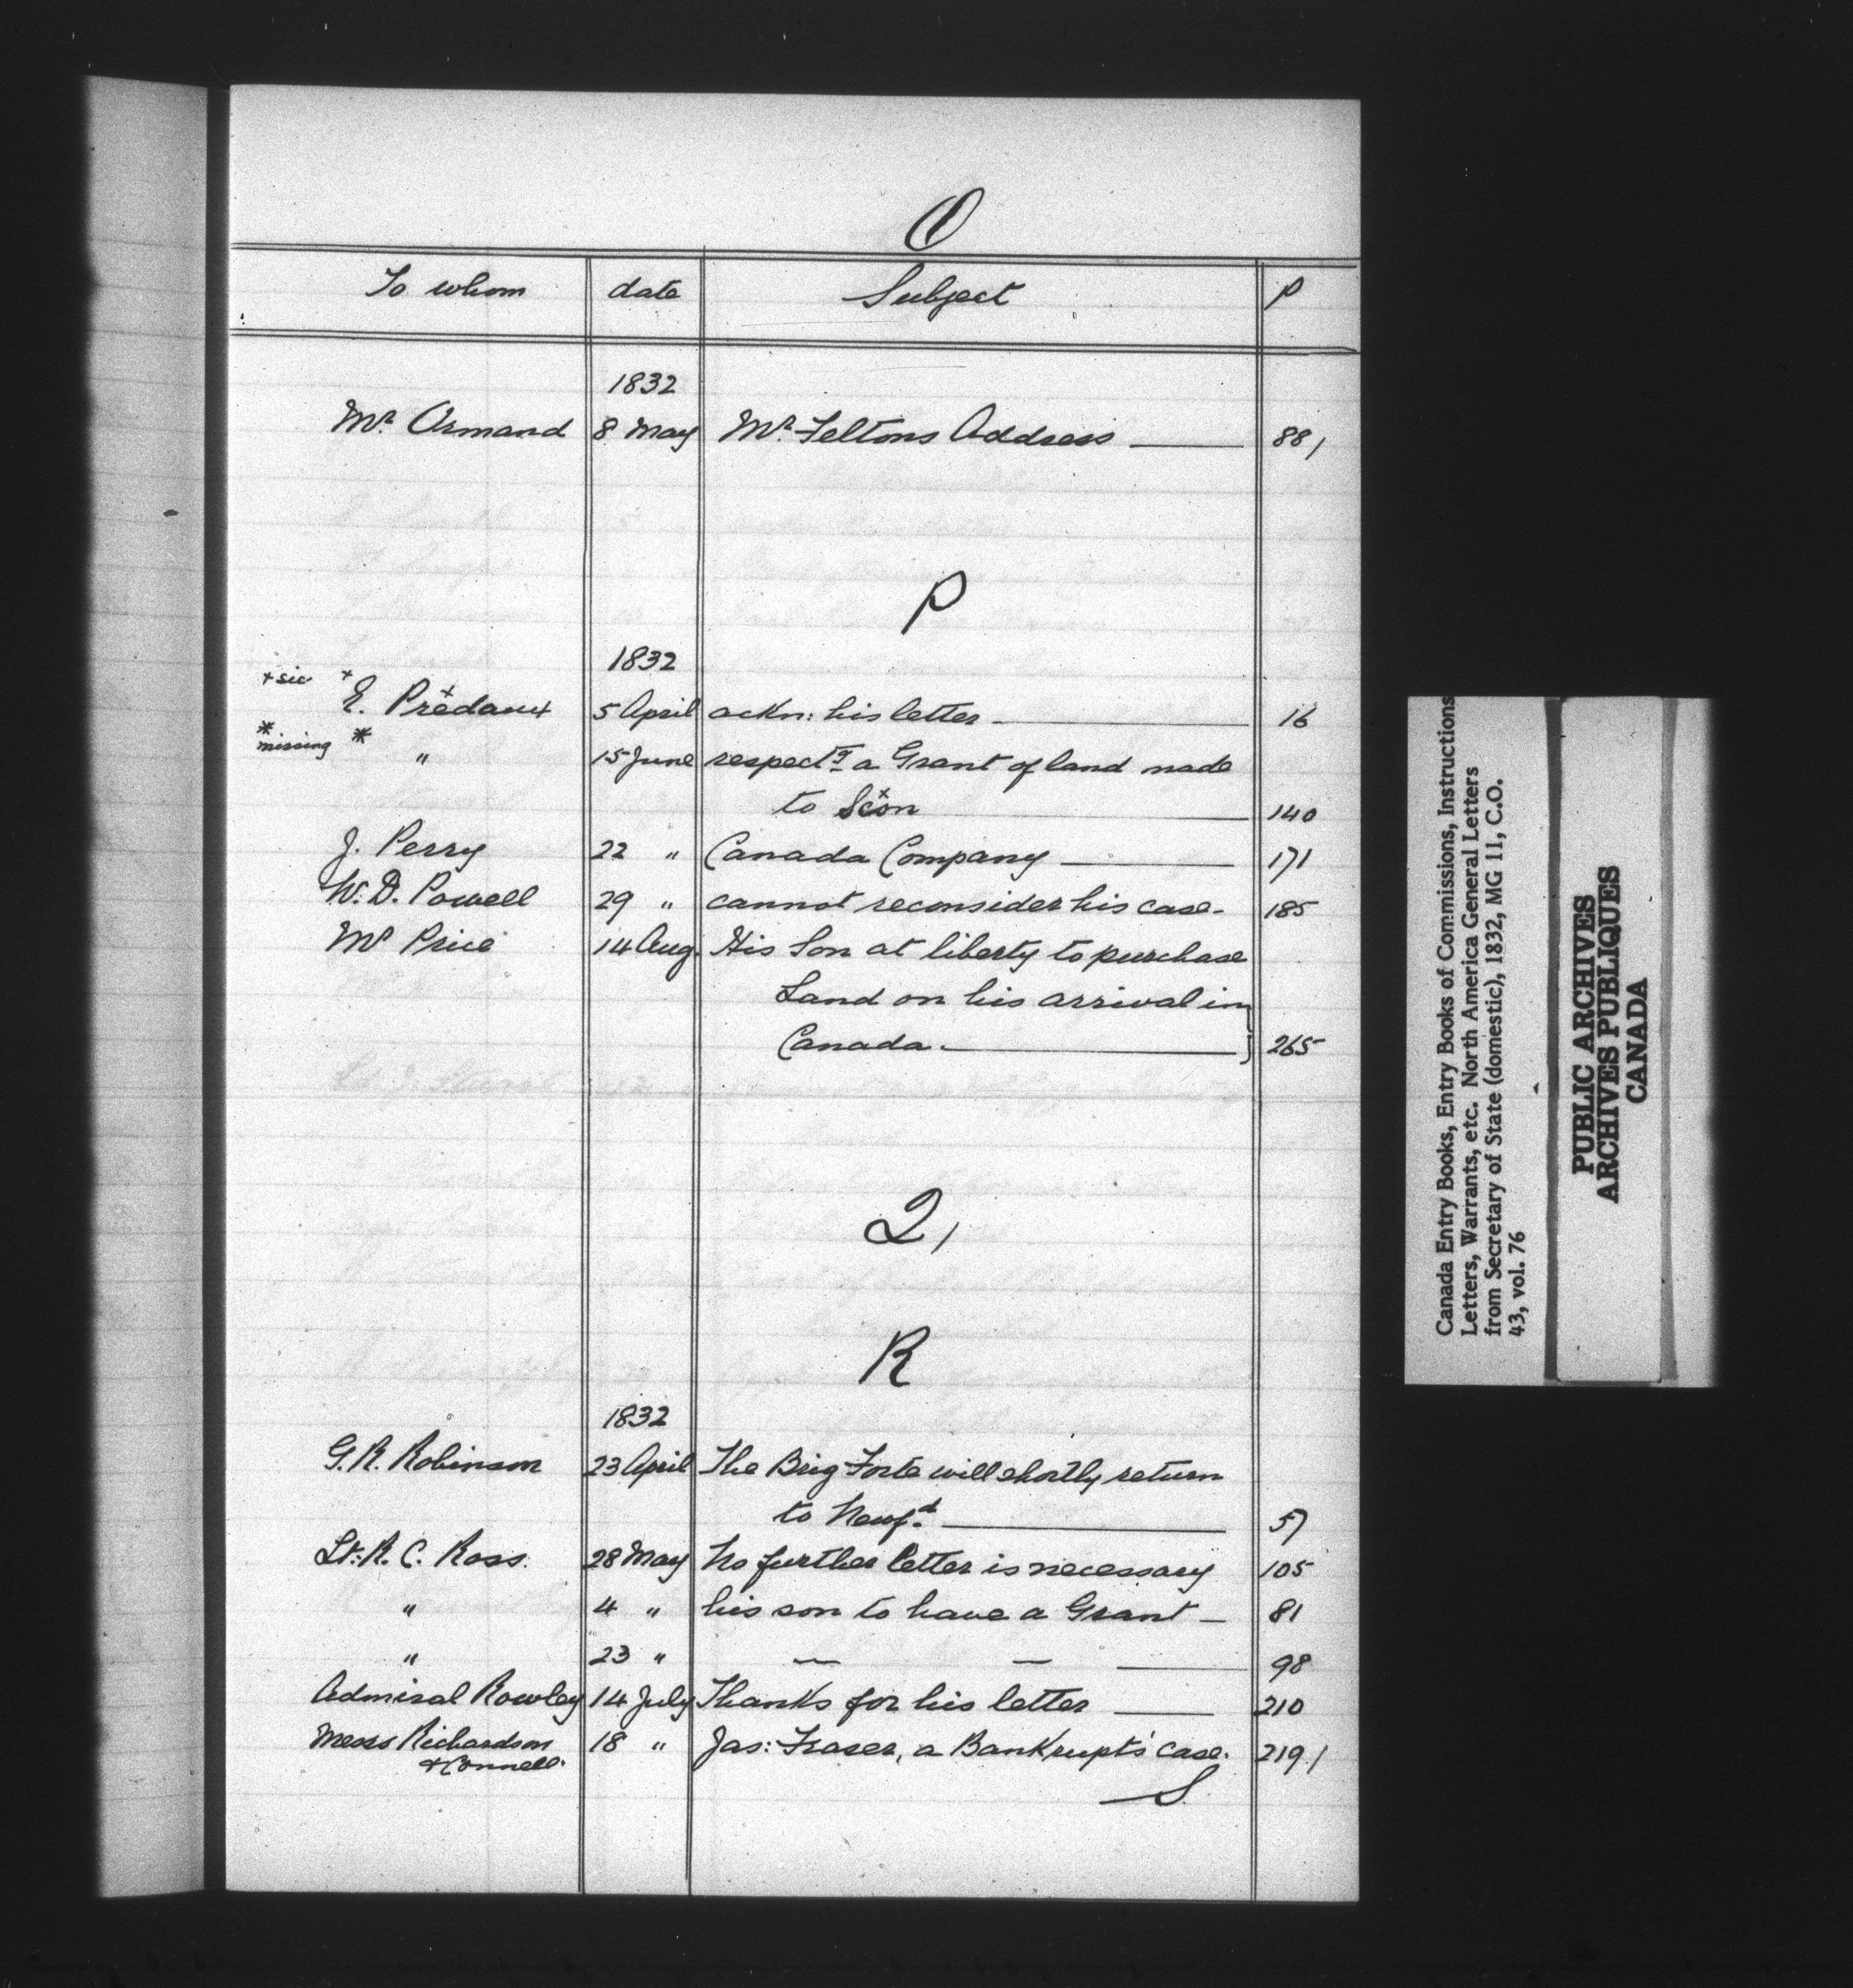 O
To whom date Subject p
1832
Mr. Armand 8 May Mr. Feltons Address — 88/
P
1832
+sic + E. Prĕdaux 5 April ackn: his letter — 16
* missing * " 15 June respectg a Grant of land made
to Scon — 140
J. Perry 22 " Canada Company — 171
W. D. Powell 29 " cannot reconsider his case - 185
Mr Price 14 Aug. His Son at liberty to purchase
Land on his arrival in
Canada. — 265
Q/
R
1832
G. R. Robinson 23 April The Brig Forte will shortly return
to Newfd. — 57
Lt. R. C. Ross. 28 May No further letter is necessary 105
" 4 " his son to have a Grant — 81
" 23 " — — — 98
Admiral Rowley 14 July Thanks for his letter — 210
Mess Richardson 18 " Jas: Fraser, a Bankrupt's case. 219/
+ Connell.
S
Canada Entry Books, Entry Books of Commissions, Instructions
Letters, Warrants, etc. North America General Letters
from Secretary of State (domestic), 1832, MG 11, C.O.
43, vol. 76
PUBLIC ARCHIVES
ARCHIVES PUBLIQUES
CANADA